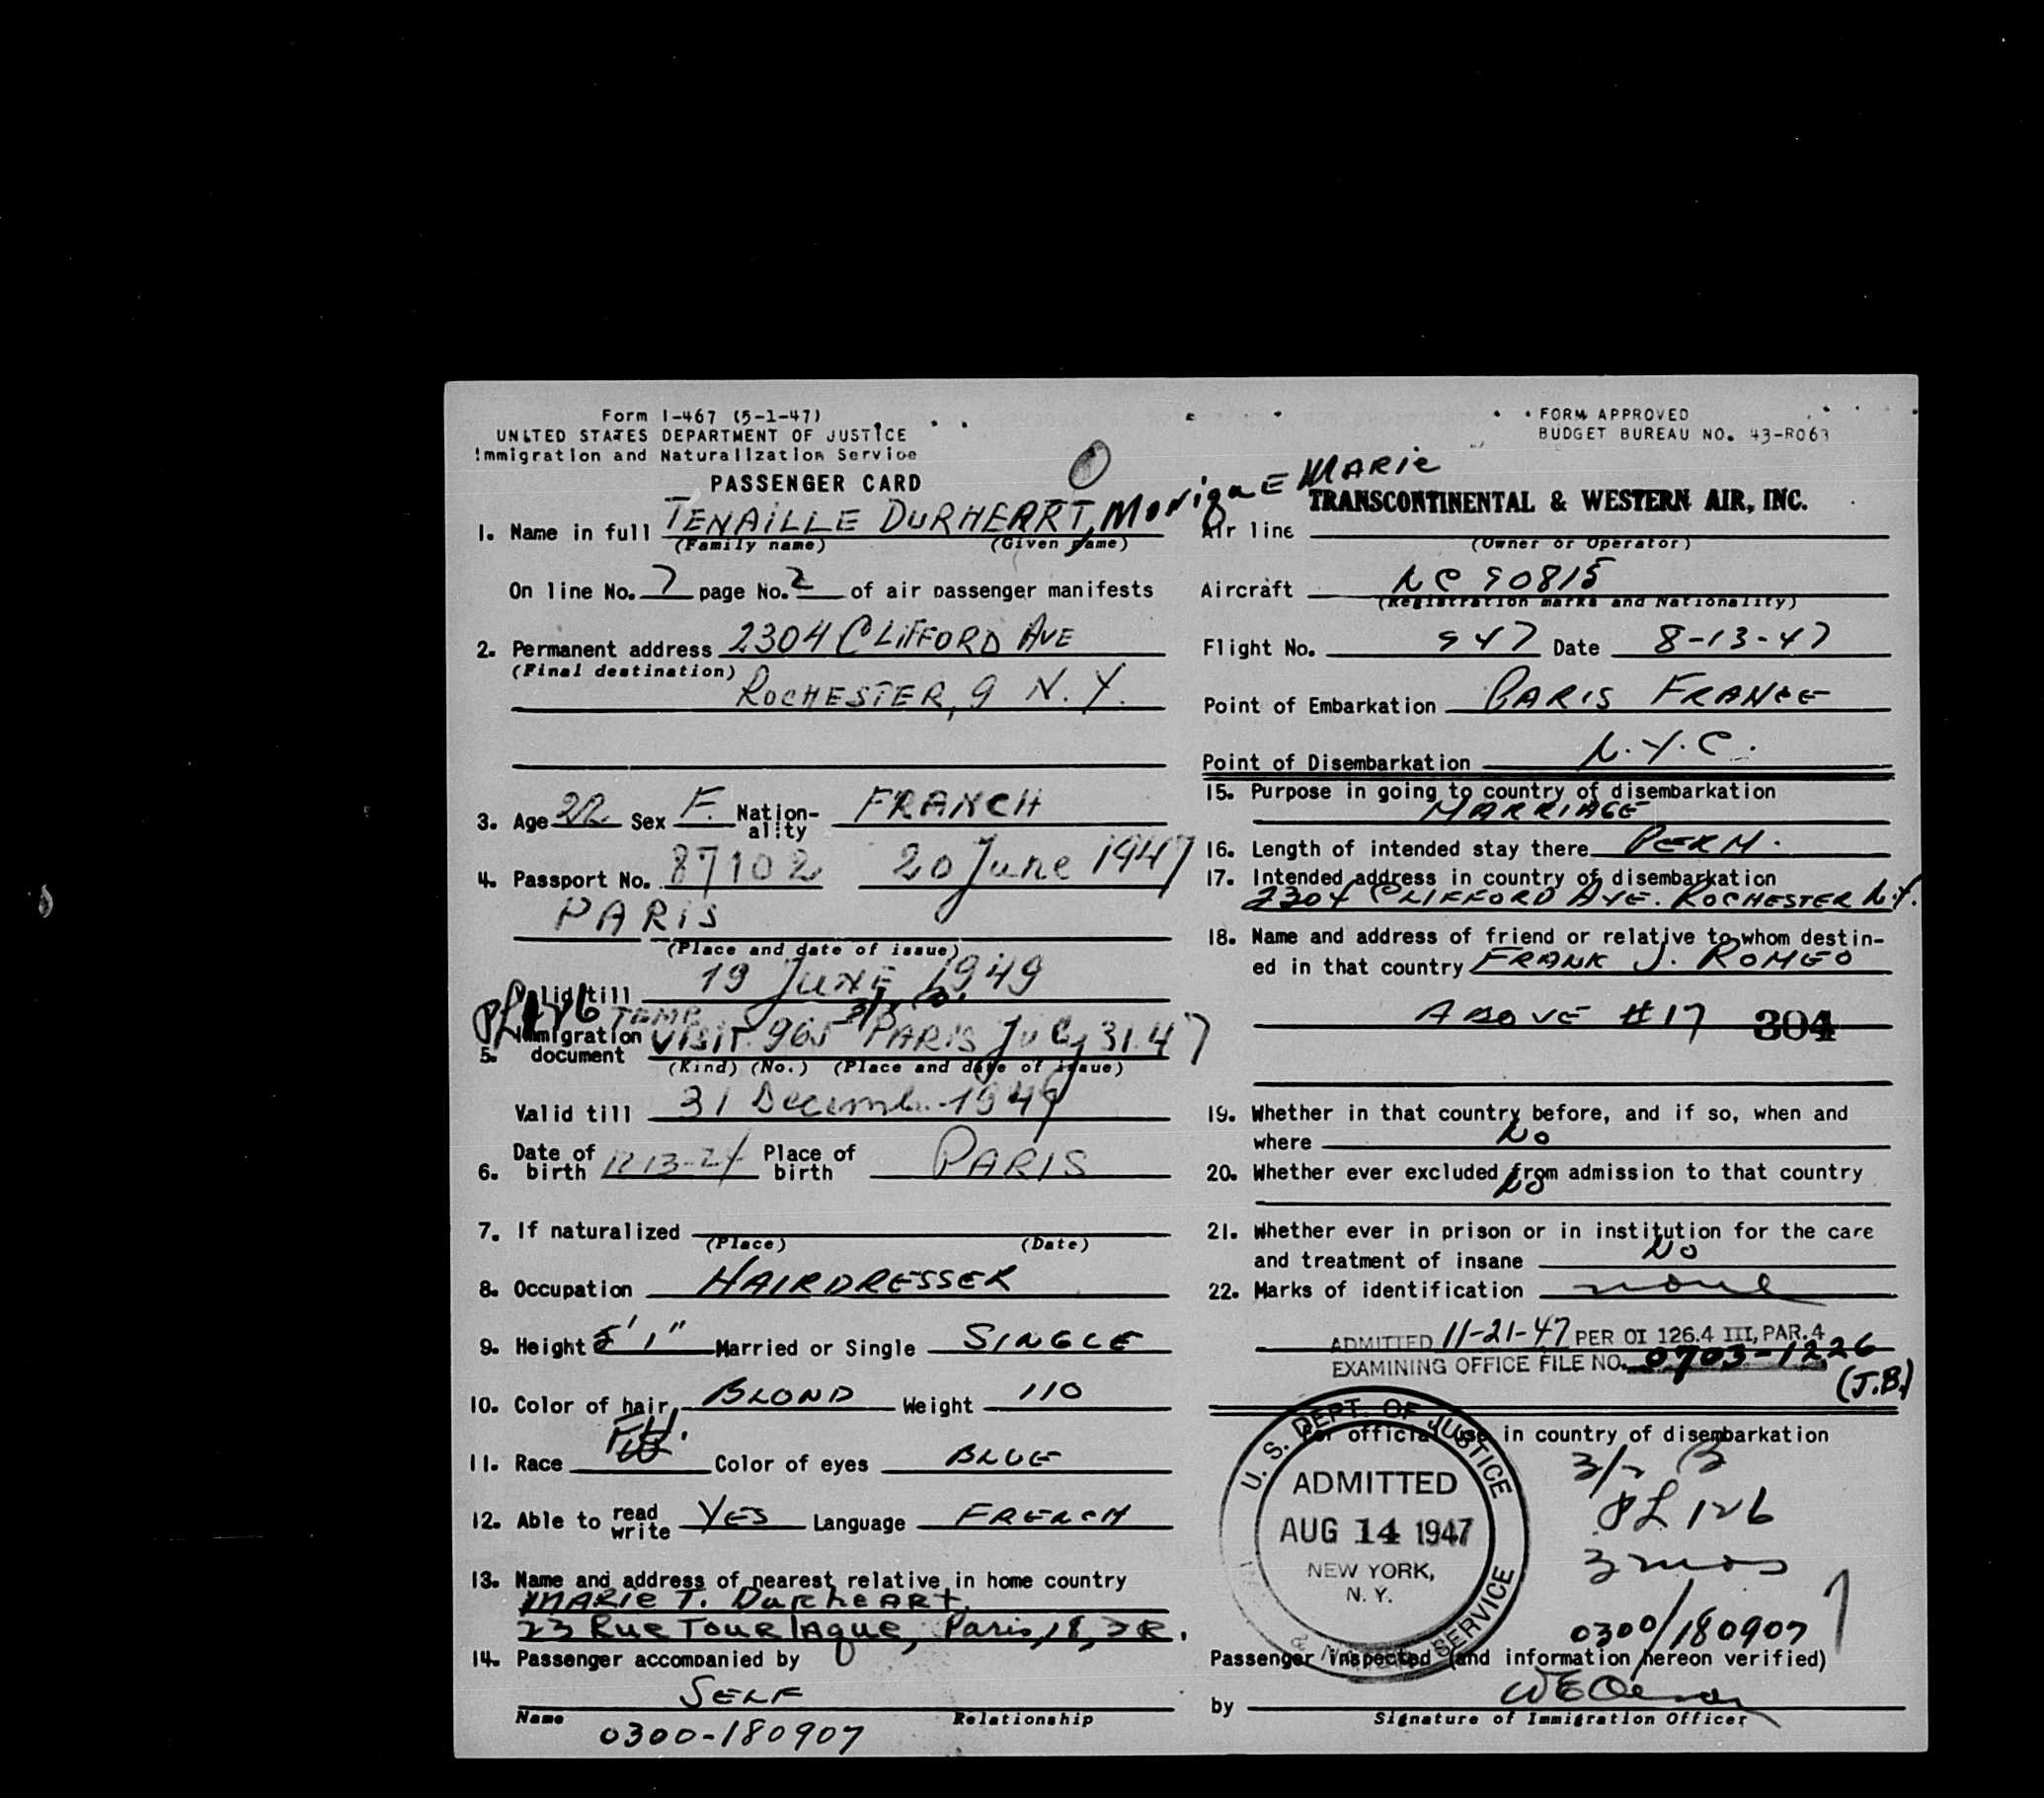 Form I-467 (5-1-47)
UNITED STATES DEPARTMENT OF JUSTICE
Immigration and Naturalization Service
PASSENGER CARD
1. Name in full TENAILLE DURHEART, MoniquE MARie
(Family name) (Given name)
On line No. 7 page No. 2 of air passenger manifests
2. Permanent address 2304 CLIFFORD AVE
(Final destination) ROCHESTER, 9 N.Y.
3. Age 22 Sex F. Nation-ality FRANCH
4. Passport No. 87102 20 June 1947
PARIS
(Place and date of issue)
Valid till 19 JUNE 1949
PL 126 TEMP 3/2 B.
5. Immigration document VISIT. 965 PARIS July 31.47
(Kind) (No.) (Place and date of issue)
Valid till 31 Decemb. 1947
6. Date of birth 12-13-24 Place of birth PARIS
7. If naturalized
(Place) (Date)
8. Occupation HAIRDRESSER
9. Height 5' 1" Married or Single SINGLE
10. Color of hair BLOND Weight 110
11. Race FH. Color of eyes BLUE
12. Able to read write YES Language FRENCH
13. Name and address of nearest relative in home country
MARie T. DurheARt
23 Rue Tourlaque, Paris, 18,
14. Passenger accompanied by
SELF
Name Relationship
0300-180907
FORM APPROVED
BUDGET BUREAU NO. 43-R063
TRANSCONTINENTAL & WESTERN AIR, INC.
Air line
(Owner or Operator)
Aircraft NC 90815
(Registration marks and Nationality)
Flight No. 947 Date 8-13-47
Point of Embarkation PARIS FRANCE
Point of Disembarkation N.Y.C.
15. Purpose in going to country of disembarkation
MARRIAGE
16. Length of intended stay there PERM.
17. Intended address in country of disembarkation
2304 CLIFFORD AVE. ROCHESTER N.Y.
18. Name and address of friend or relative to whom destin-
ed in that country FRANK J. ROMEO
ABOVE #17 304
19. Whether in that country before, and if so, when and
where No
20. Whether ever excluded from admission to that country
No
21. Whether ever in prison or in institution for the care
and treatment of insane No
22. Marks of identification none
ADMITTED 11-21-47 PER OI 126.4 III, PAR. 4
EXAMINING OFFICE FILE NO. 0703-1226
(J.B.)
For official use in country of disembarkation
U. S. DEPT. OF JUSTICE
ADMITTED
AUG 14 1947
NEW YORK,
N. Y.
SERVICE
3/2 B
PL 126
3 mos
0300/180907
Passenger inspected (and information hereon verified)
by
Signature of Immigration Officer